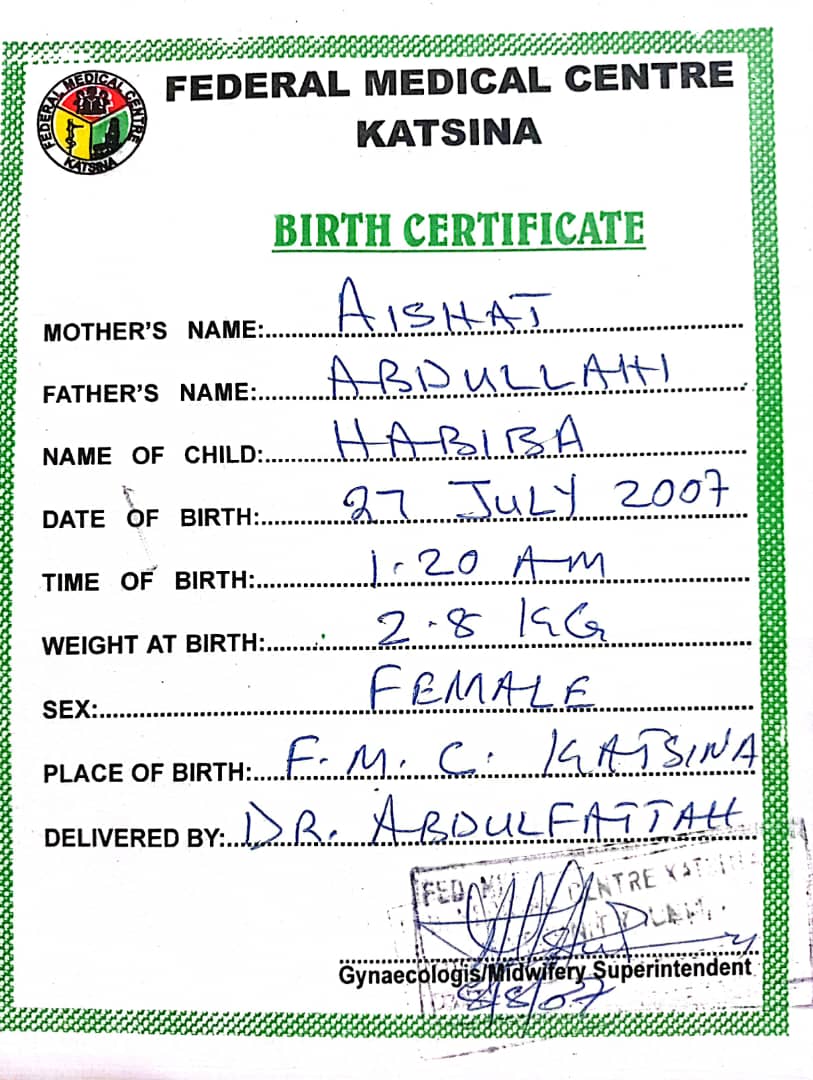 FEDERAL MEDICAL CENTRE
KATSINA
FEDERAL MEDICAL CENTRE
KATSINA
BIRTH CERTIFICATE
MOTHER'S NAME: AISHAT
FATHER'S NAME: ABDULLAHI
NAME OF CHILD: HABIBA
DATE OF BIRTH: 27 JULY 2007
TIME OF BIRTH: 1.20 AM
WEIGHT AT BIRTH: 2.8 KG
SEX: FEMALE
PLACE OF BIRTH: F.M.C. KATSINA
DELIVERED BY: DR. ABDULFATTAH
FED
Gynaecologis/Midwifery Superintendent
8/8/07